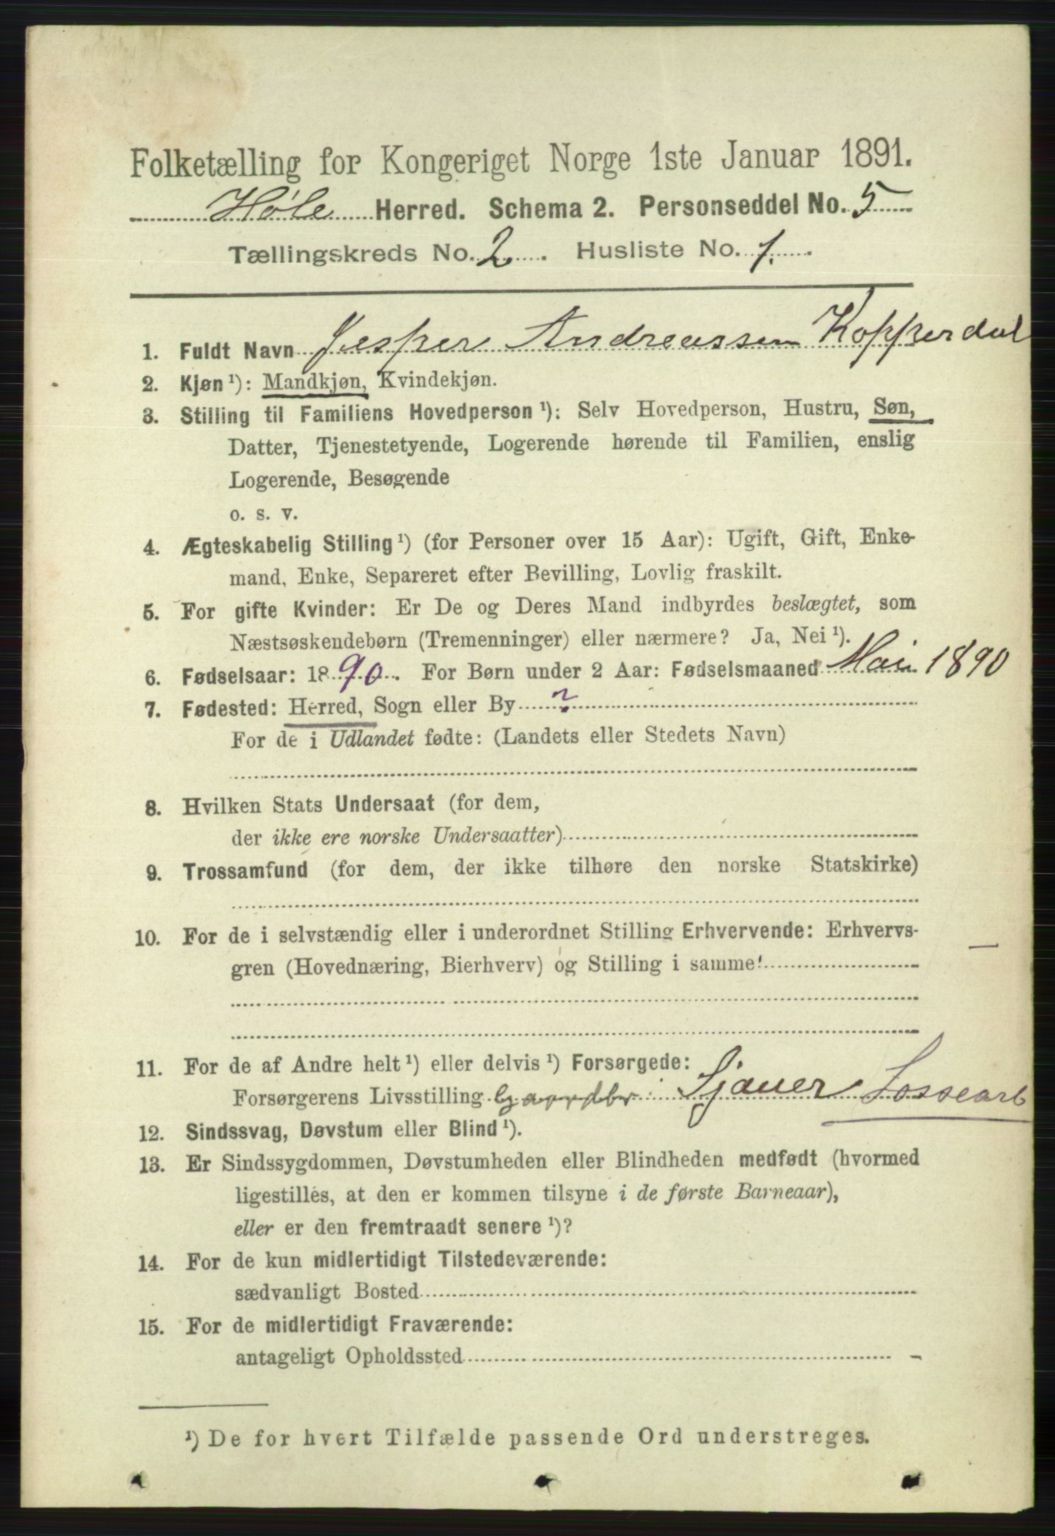 Folketælling for Kongeriget Norge 1ste Januar 1891.
Høle Herred. Schema 2. Personseddel No. 5
Tællingskreds No. 2. Husliste No. 1.
1. Fuldt Navn Jesper Andreassen Kopperdal
2. Kjøn ¹): Mandkjøn, Kvindekjøn.
3. Stilling til Familiens Hovedperson ¹): Selv Hovedperson, Hustru, Søn,
Datter, Tjenestetyende, Logerende hørende til Familien, enslig
Logerende, Besøgende
o. s. v.
4. Ægteskabelig Stilling ¹) (for Personer over 15 Aar): Ugift, Gift, Enke-
mand, Enke, Separeret efter Bevilling, Lovlig fraskilt.
5. For gifte Kvinder: Er De og Deres Mand indbyrdes beslægtet, som
Næstsøskendebørn (Tremenninger) eller nærmere? Ja, Nei ¹).
6. Fødselsaar: 1890. For Børn under 2 Aar: Fødselsmaaned Mai 1890
7. Fødested: Herred, Sogn eller By ?
For de i Udlandet fødte: (Landets eller Stedets Navn)
8. Hvilken Stats Undersaat (for dem,
der ikke ere norske Undersaatter)
9. Trossamfund (for dem, der ikke tilhøre den norske Statskirke)
10. For de i selvstændig eller i underordnet Stilling Erhvervende: Erhvervs-
gren (Hovednæring, Bierhverv) og Stilling i samme! —
11. For de af Andre helt ¹) eller delvis ¹) Forsørgede:
Forsørgerens Livsstilling Gaardbr Sjauer Lossearb
12. Sindssvag, Døvstum eller Blind ¹).
13. Er Sindssygdommen, Døvstumheden eller Blindheden medfødt (hvormed
ligestilles, at den er kommen tilsyne i de første Barneaar),
eller er den fremtraadt senere ¹)?
14. For de kun midlertidigt Tilstedeværende:
sædvanligt Bosted
15. For de midlertidigt Fraværende:
antageligt Opholdssted
¹) De for hvert Tilfælde passende Ord understreges.